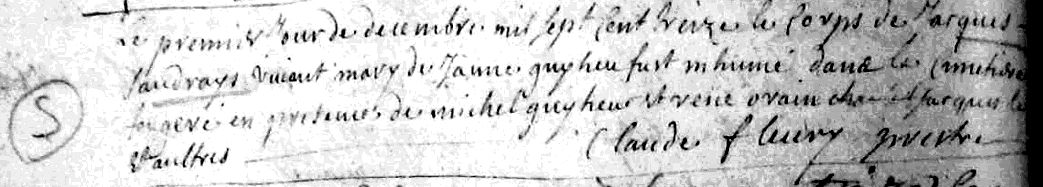 Le premier Jour de decembre mil sept Cent treize le Corps de Jacques
vivant mary de Janne guyheu fust inhumé dans le Cimetiere
en presence de michel guyheu et rené Jacques
S
& aultres Claude fleury prestre